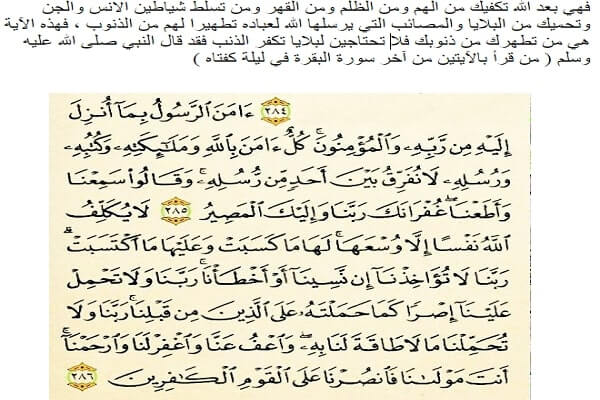 فهي بعد الله تكفيك من الهم ومن الظلم ومن القهر ومن تسلط شياطين الانس والجن
وتحميك من البلايا والمصائب التي يرسلها الله لعباده تطهيرا لهم من الذنوب ، فهذه الآية
هي من تطهرك من ذنوبك فلا تحتاجين لبلايا تكفر الذنب فقد قال النبي صلى الله عليه
وسلم ( من قرأ بالآيتين من آخر سورة البقرة في ليلة كفتاه )
٢٨٤ ءَامَنَ ٱلرَّسُولُ بِمَآ أُنزِلَ
إِلَيْهِ مِن رَّبِّهِۦ وَٱلْمُؤْمِنُونَۚ كُلٌّ ءَامَنَ بِٱللَّهِ وَمَلَٰٓئِكَتِهِۦ وَكُتُبِهِۦ
وَرُسُلِهِۦ لَا نُفَرِّقُ بَيْنَ أَحَدٍ مِّن رُّسُلِهِۦۚ وَقَالُوا۟ سَمِعْنَا
وَأَطَعْنَاۖ غُفْرَانَكَ رَبَّنَا وَإِلَيْكَ ٱلْمَصِيرُ ٢٨٥ لَا يُكَلِّفُ
ٱللَّهُ نَفْسًا إِلَّا وُسْعَهَاۚ لَهَا مَا كَسَبَتْ وَعَلَيْهَا مَا ٱكْتَسَبَتْۗ
رَبَّنَا لَا تُؤَاخِذْنَآ إِن نَّسِينَآ أَوْ أَخْطَأْنَاۚ رَبَّنَا وَلَا تَحْمِلْ
عَلَيْنَآ إِصْرًا كَمَا حَمَلْتَهُۥ عَلَى ٱلَّذِينَ مِن قَبْلِنَاۚ رَبَّنَا وَلَا
تُحَمِّلْنَا مَا لَا طَاقَةَ لَنَا بِهِۦۖ وَٱعْفُ عَنَّا وَٱغْفِرْ لَنَا وَٱرْحَمْنَآۚ
أَنتَ مَوْلَىٰنَا فَٱنصُرْنَا عَلَى ٱلْقَوْمِ ٱلْكَٰفِرِينَ ٢٨٦